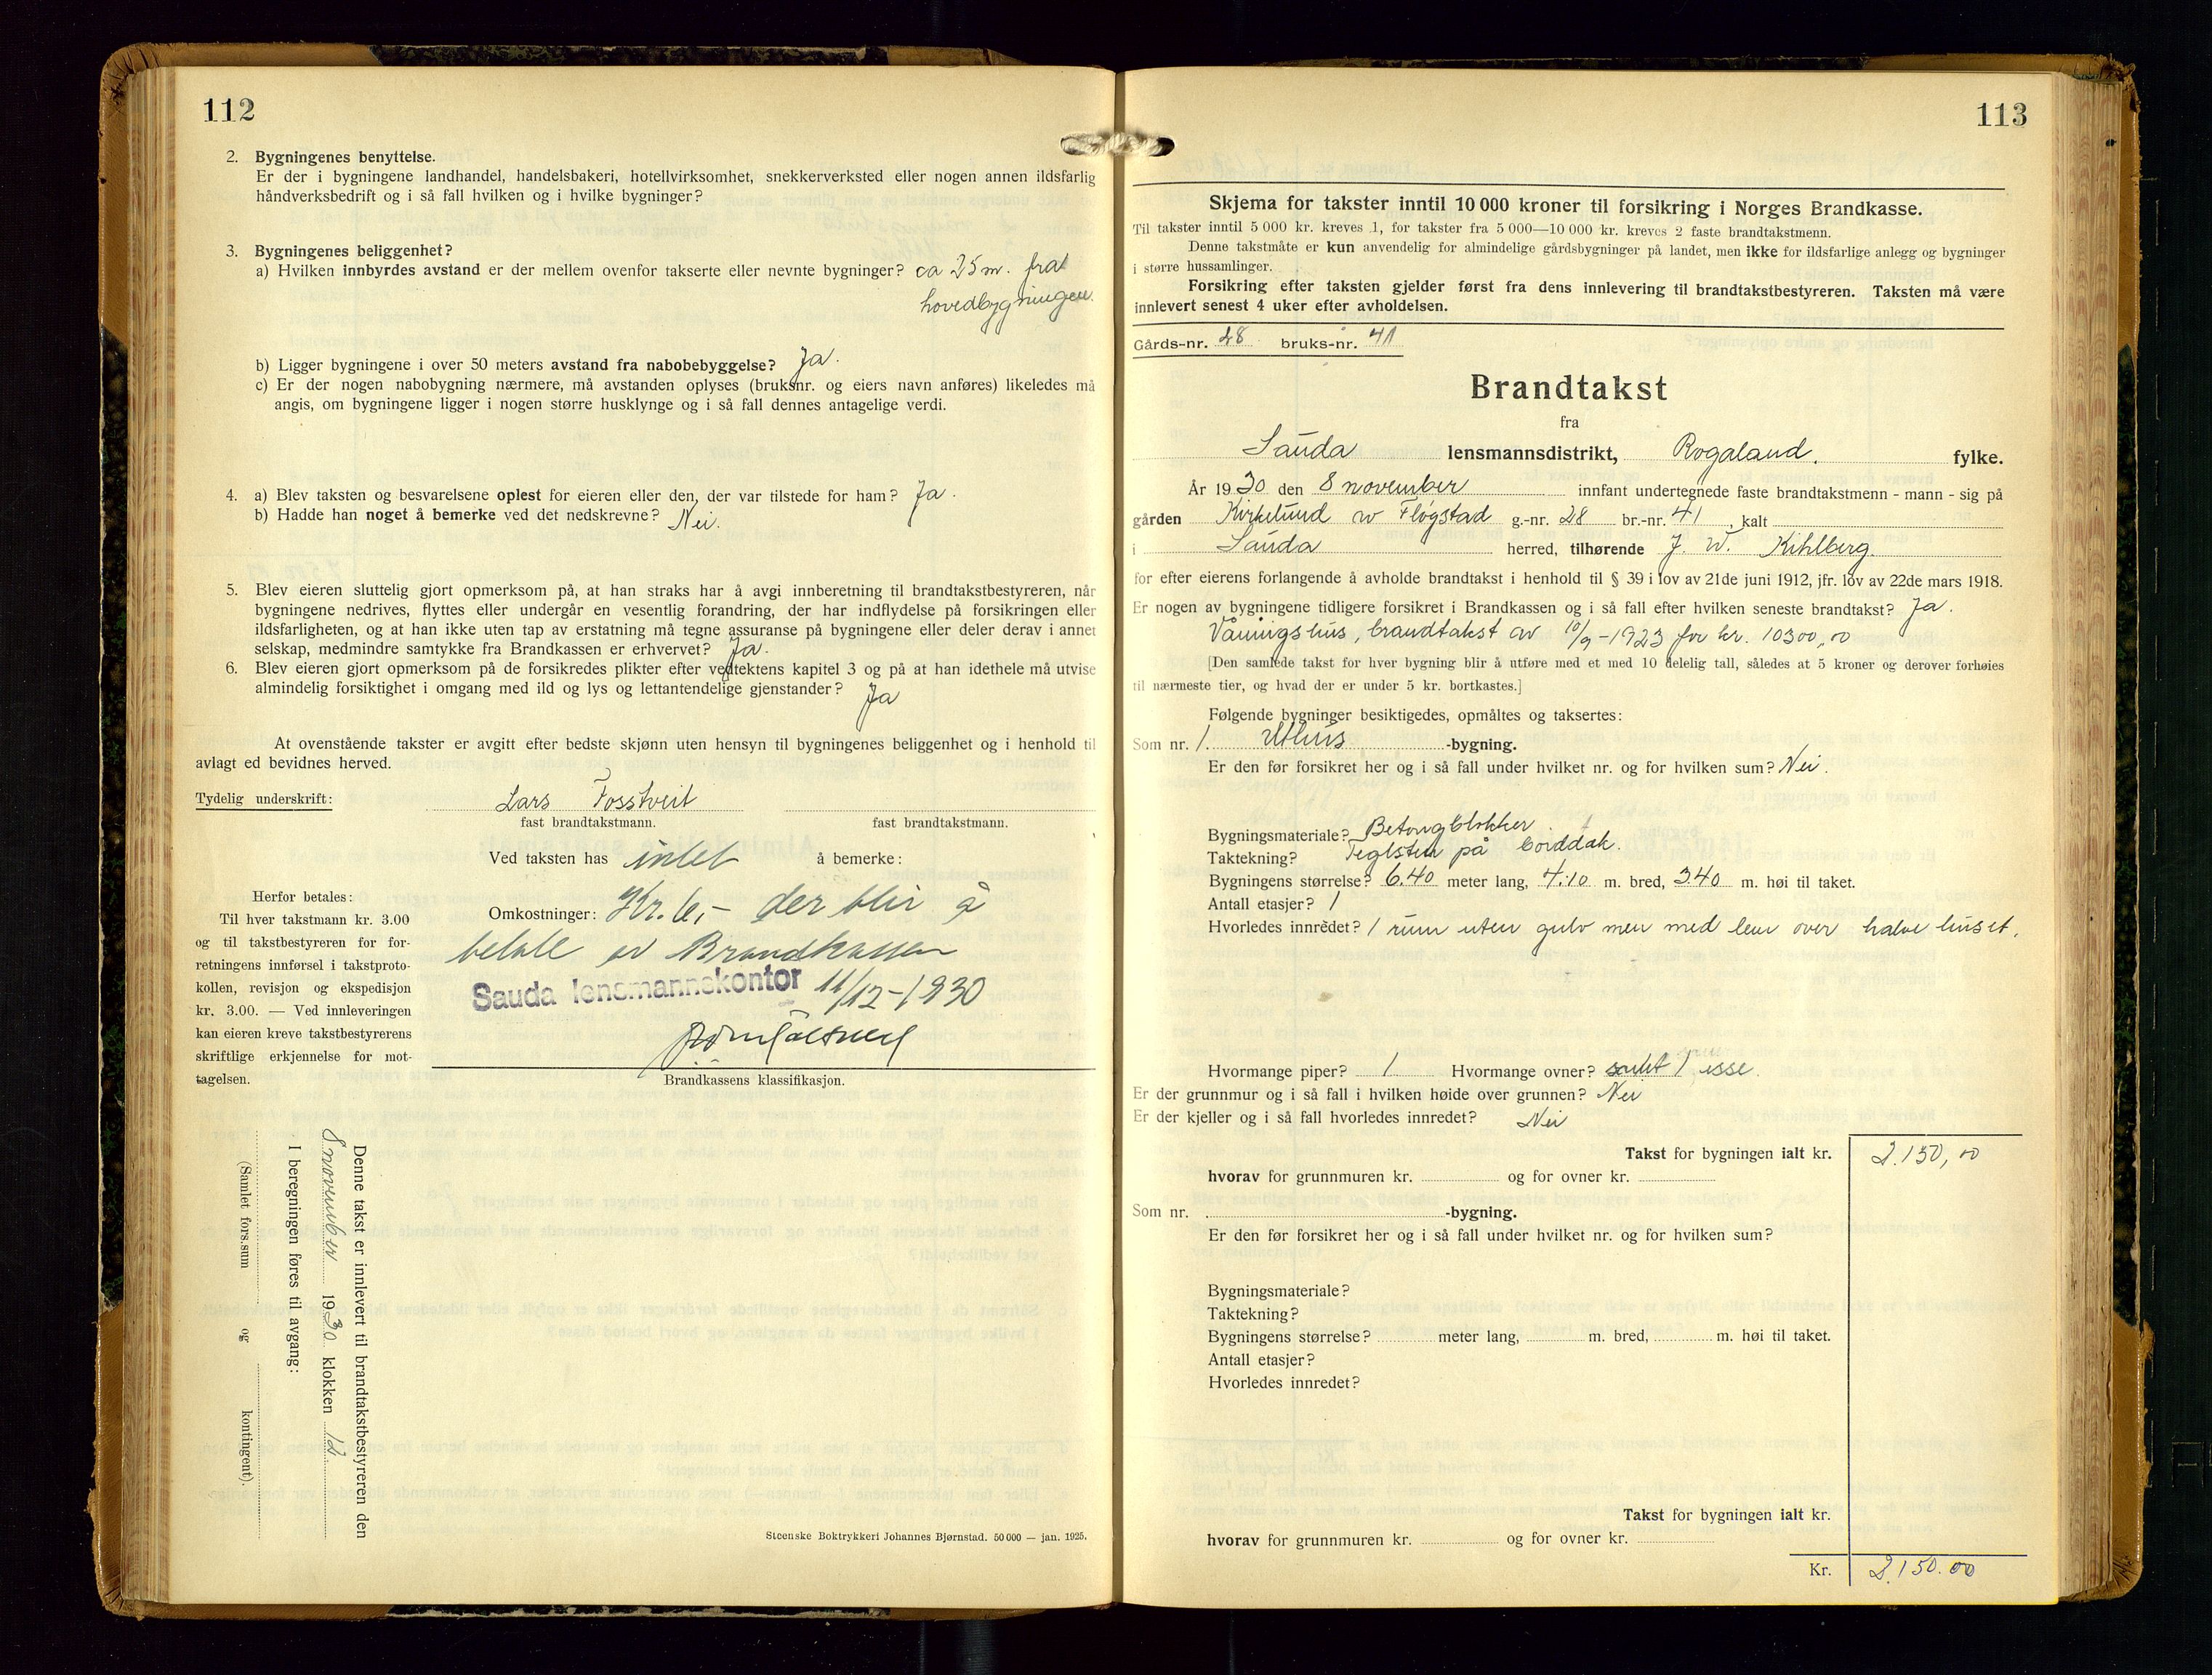 112
2. Bygningenes benyttelse.
Er der i bygningene landhandel, handelsbakeri, hotellvirksomhet, snekkerverksted eller nogen annen ildsfarlig
håndverksbedrift og i så fall hvilken og i hvilke bygninger?
3. Bygningenes beliggenhet?
a) Hvilken innbyrdes avstand er der mellem ovenfor takserte eller nevnte bygninger? ca 25 m. fra
hovedbygningen.
b) Ligger bygningene i over 50 meters avstand fra nabobebyggelse? Ja.
c) Er der nogen nabobygning nærmere, må avstanden oplyses (bruksnr. og eiers navn anføres) likeledes må
angis, om bygningene ligger i nogen større husklynge og i så fall dennes antagelige verdi.
4. a) Blev taksten og besvarelsene oplest for eieren eller den, der var tilstede for ham? Ja.
b) Hadde han noget å bemerke ved det nedskrevne? Nei.
5. Blev eieren sluttelig gjort opmerksom på, at han straks har å avgi innberetning til brandtakstbestyreren, når
bygningene nedrives, flyttes eller undergår en vesentlig forandring, der har indflydelse på forsikringen eller
ildsfarligheten, og at han ikke uten tap av erstatning må tegne assuranse på bygningene eller deler derav i annet
selskap, medmindre samtykke fra Brandkassen er erhvervet? Ja.
6. Blev eieren gjort opmerksom på de forsikredes plikter efter vedtektens kapitel 3 og på at han idethele må utvise
almindelig forsiktighet i omgang med ild og lys og lettantendelige gjenstander? Ja
At ovenstående takster er avgitt efter bedste skjønn uten hensyn til bygningenes beliggenhet og i henhold til
avlagt ed bevidnes herved.
Tydelig underskrift: Lars Fosstveit
fast brandtakstmann. fast brandtakstmann.
Ved taksten has intet å bemerke:
Omkostninger: Kr. 6,- der blir å
betale av Brandkassen
Sauda lensmannskontor 11/12-1930
Brandkassens klassifikasjon.
Herfor betales:
Til hver takstmann kr. 3.00
og til takstbestyreren for for-
retningens innførsel i takstproto-
kollen, revisjon og ekspedisjon
kr. 3.00. — Ved innleveringen
kan eieren kreve takstbestyrerens
skriftlige erkjennelse for mot-
tagelsen.
Denne takst er innlevert til brandtakstbestyreren den
8 november 1930 klokken 12
I beregningen føres til avgang:
(Samlet fors.sum og kontingent).
Steenske Boktrykkeri Johannes Bjørnstad. 50 000 — jan. 1925.
113
Skjema for takster inntil 10 000 kroner til forsikring i Norges Brandkasse.
Til takster inntil 5 000 kr. kreves 1, for takster fra 5 000—10 000 kr. kreves 2 faste brandtakstmenn.
Denne takstmåte er kun anvendelig for almindelige gårdsbygninger på landet, men ikke for ildsfarlige anlegg og bygninger
i større hussamlinger.
Forsikring efter taksten gjelder først fra dens innlevering til brandtakstbestyreren. Taksten må være
innlevert senest 4 uker efter avholdelsen.
Gårds-nr. 28 bruks-nr. 41
Brandtakst
fra
Sauda lensmannsdistrikt, Rogaland. fylke.
År 1930 den 8 november innfant undertegnede faste brandtakstmenn - mann - sig på
gården Kirkelund av Fløgstad g.-nr. 28 br.-nr. 41, kalt
i Sauda herred, tilhørende J. W. Kihlberg.
for efter eierens forlangende å avholde brandtakst i henhold til § 39 i lov av 21de juni 1912, jfr. lov av 22de mars 1918.
Er nogen av bygningene tidligere forsikret i Brandkassen og i så fall efter hvilken seneste brandtakst? Ja.
Våningshus, brandtakst av 10/9-1923 for kr. 10300,00
[Den samlede takst for hver bygning blir å utføre med et med 10 delelig tall, således at 5 kroner og derover forhøies
til nærmeste tier, og hvad der er under 5 kr. bortkastes.]
Følgende bygninger besiktigedes, opmåltes og taksertes:
Som nr. 1. Uthus -bygning.
Er den før forsikret her og i så fall under hvilket nr. og for hvilken sum? Nei.
Bygningsmateriale? Betongblokker
Taktekning? Teglsten på borddak.
Bygningens størrelse? 6.40 meter lang, 4.10 m. bred, 3.40 m. høi til taket.
Antall etasjer? 1
Hvorledes innredet? 1 rum uten gulv men med lem over halve huset.
Hvormange piper? 1 Hvormange ovner? samt 1 esse.
Er der grunnmur og i så fall i hvilken høide over grunnen? Nei
Er der kjeller og i så fall hvorledes innredet? Nei
Takst for bygningen ialt kr. 2.150,00
hvorav for grunnmuren kr. og for ovner kr.
Som nr. -bygning.
Er den før forsikret her og i så fall under hvilket nr. og for hvilken sum?
Bygningsmateriale?
Taktekning?
Bygningens størrelse? meter lang, m. bred, m. høi til taket.
Antall etasjer?
Hvorledes innredet?
Takst for bygningen ialt kr.
hvorav for grunnmuren kr. og for ovner kr.
Kr. 2.150.00